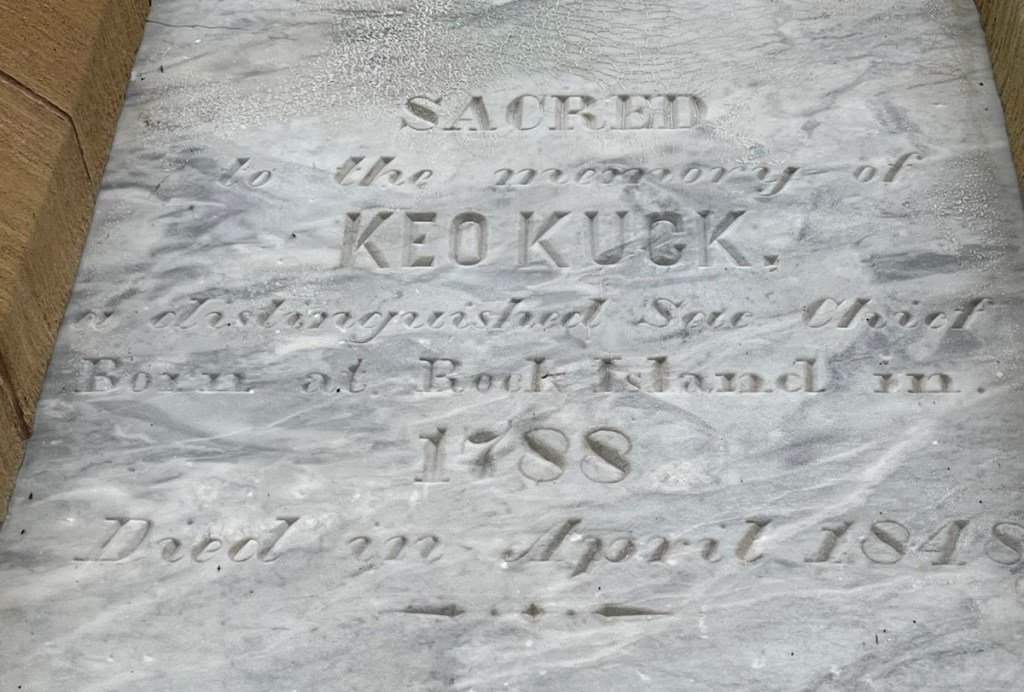 SACRED
to the memory of
KEOKUCK,
a distinguished Sac Chief
Born at Rock Island in.
1788
Died in April 1848